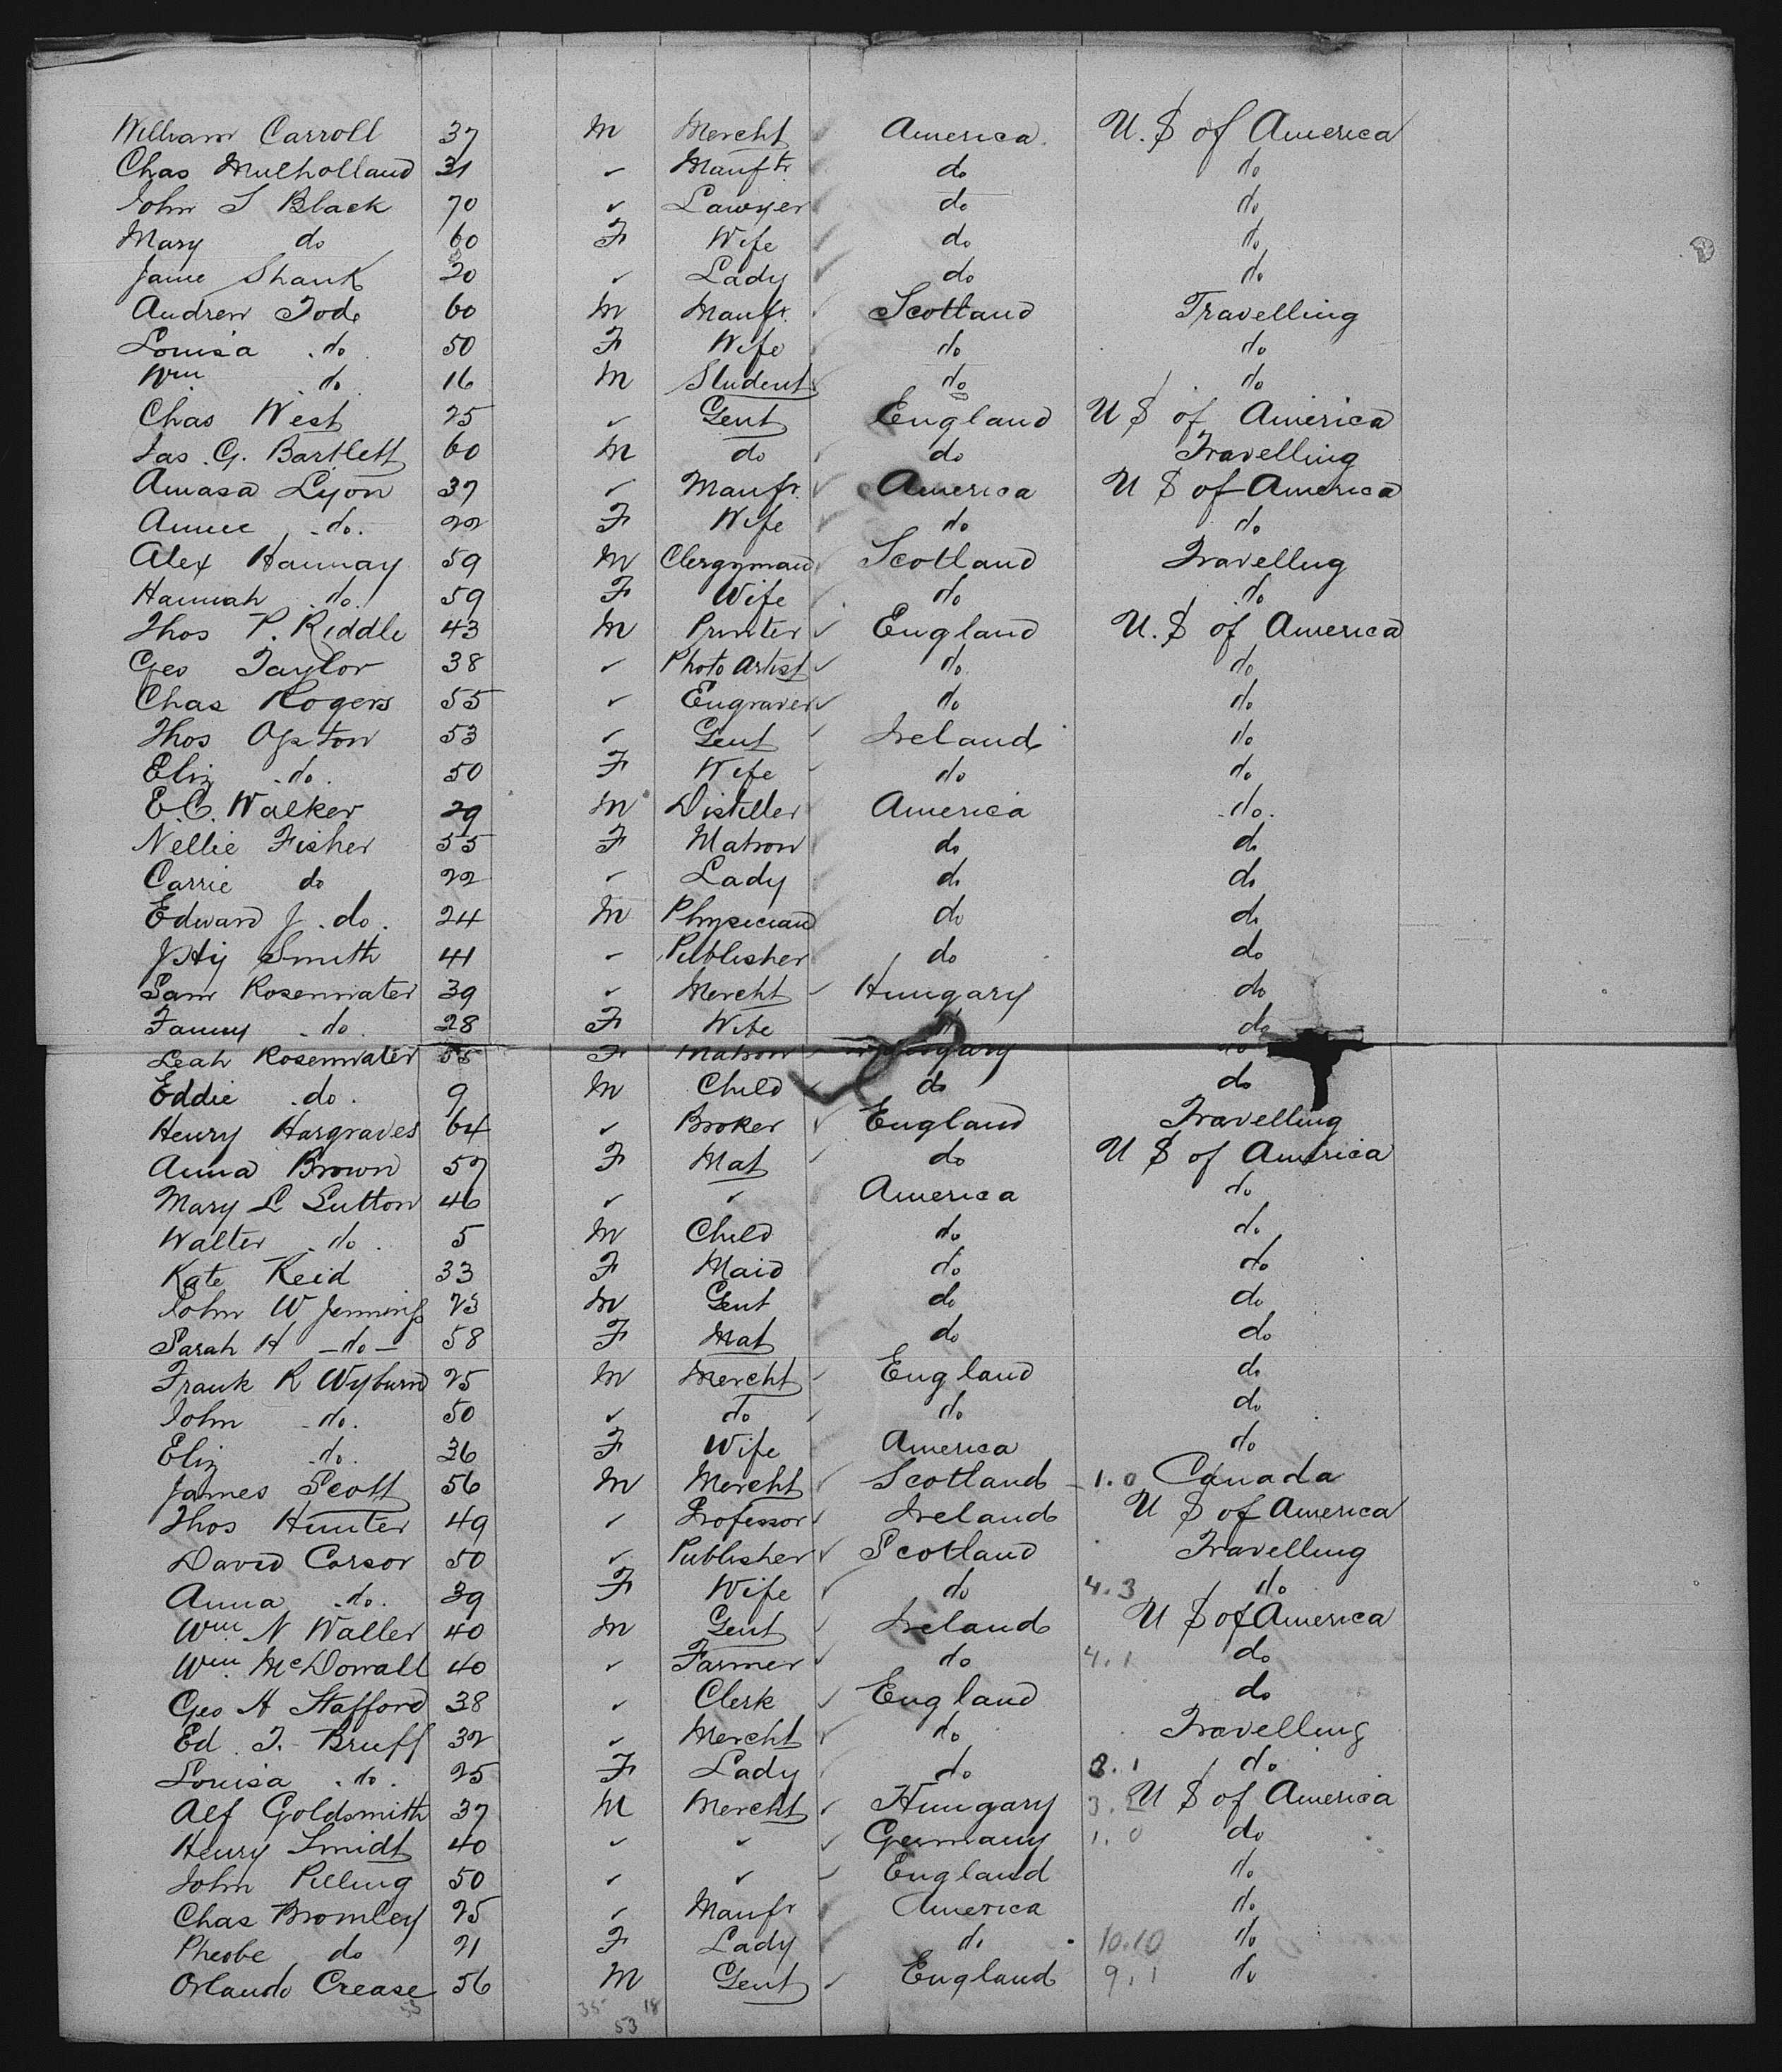 William Carroll 37 M Mercht America U.S of America
Chas Mulholland 31 ✓ Manftr do do
John S Black 70 ✓ Lawyer do do
Mary do 60 F Wife do do
Jane Shank 20 ✓ Lady do do
Andrew Tod 60 M Manfr. Scotland Travelling
Louisa do 50 F Wife do do
Wm do 16 M Student do do
Chas West 25 ✓ Gent England U S of America
Jas. G. Bartlett 60 M do do Travelling
Amasa Lyon 37 ✓ Manfr. America U S of America
Annie do. 22 F Wife do do
Alex Hannay 59 M Clergyman Scotland Travellng
Hannah do. 59 F Wife do do
Thos P. Riddle 43 M Printer England U.S of America
Geo Taylor 38 ✓ Photo Artist do. do
Chas Rogers 55 ✓ Engraver do do
Thos Upton 53 ✓ Gent Ireland do
Eliz do. 50 F Wife do do
E.C. Walker 29 M Distiller America do.
Nellie Fisher 55 F Matron do do
Carrie do 22 ✓ Lady do do
Edward J. do. 24 M Physician do do
Smith 41 ✓ Publisher do do
Sam Rosenwater 39 ✓ Mercht Hungary do
Fanny do. 28 F Wife do
Leah Rosenwater 55 F Matron Hungary do
Eddie do. 9 M Child do do
Henry Hargraves 64 ✓ Broker England Travelling
Anna Brown 57 F Mat do U S of America
Mary L Sutton 46 ✓ ✓ America do
Walter do. 5 M Child do do
Kate Reid 33 F Maid do do
John W Jennings 25 M Gent do do
Sarah H - do - 58 F Mat do do
Frank R Wyburn 25 M Mercht England do
John do. 50 ✓ do do do
Eliz do. 36 F Wife America do
James Scott 56 M Mercht Scotland 1.0 Canada
Thos Hunter 49 ✓ Professor Ireland U S of America
David Carsor 50 ✓ Publisher Scotland Travelling
Anna do. 39 F Wife do 4.3 do
Wm. N Waller 40 M Gent Ireland U S of America
Wm. McDowall 40 ✓ Farmer do 4.1 do
Geo H Stafford 38 ✓ Clerk England do
Ed. T. Bruff 32 ✓ Mercht do Travelling
Louisa do. 25 F Lady do 8.1 do
Alf Goldsmith 37 M Mercht Hungary U S of America
Henry Smidt 40 ✓ ✓ Germany 1.0 do
John Pilling 50 ✓ ✓ England do
Chas Bromley 25 ✓ Manfr America do
Pheobe do 21 F Lady do 10.10 do
Orlando Crease 56 M Gent England 9.1 do
53 35 18
53